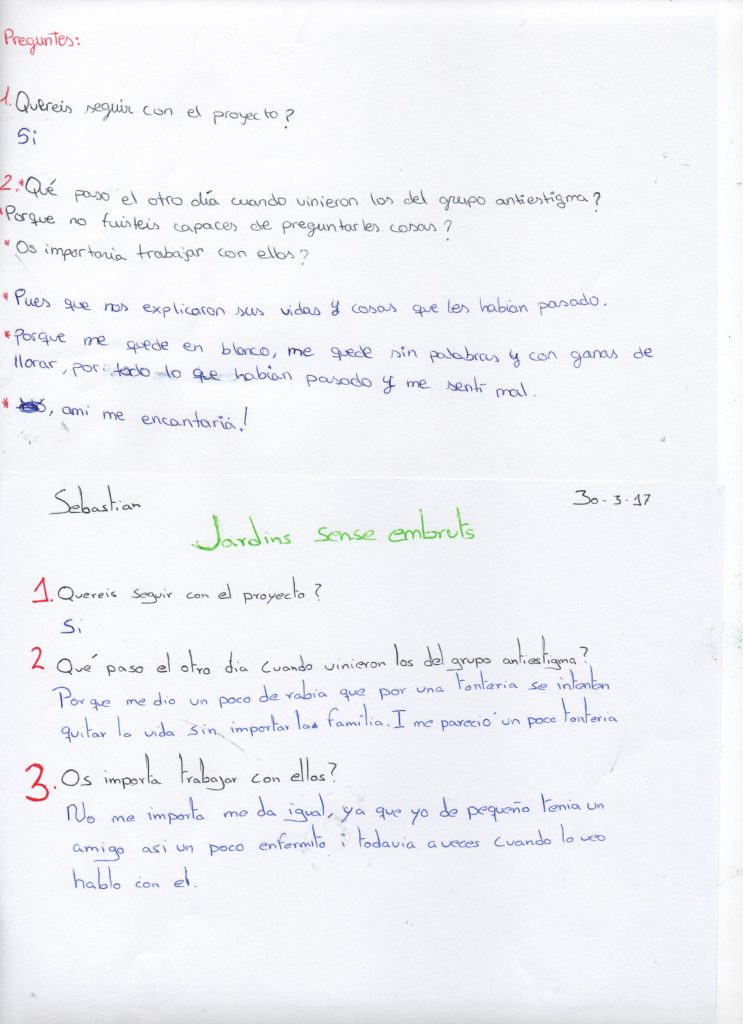 Preguntes:
1. Quereis seguir con el proyecto?
Si
2.* Qué paso el otro día cuando vinieron los del grupo antiestigma?
* Porque no fuisteis capaces de preguntarles cosas?
* Os importaria trabajar con ellos?
* Pues que nos explicaron sus vidas y cosas que les habian pasado.
* Porque me quede en blanco, me quede sin palabras y con ganas de
llorar, por todo lo que habian pasado y me senti mal.
* , ami me encantaria!
Sebastian 30-3-17
Jardins sense embruts
1. Quereis seguir con el proyecto?
Si
2 Qué paso el otro dia cuando vinieron los del grupo antiestigma?
Porque me dio un poco de rabia que por una tonteria se intenten
quitar la vida sin importar las família. I me pareció un poco tonteria
3. Os importa trabajar con ellos?
No me importa me da igual, ya que yo de pequeño tenia un
amigo asi un poco enfermito i todavia aveces cuando lo veo
hablo con el.